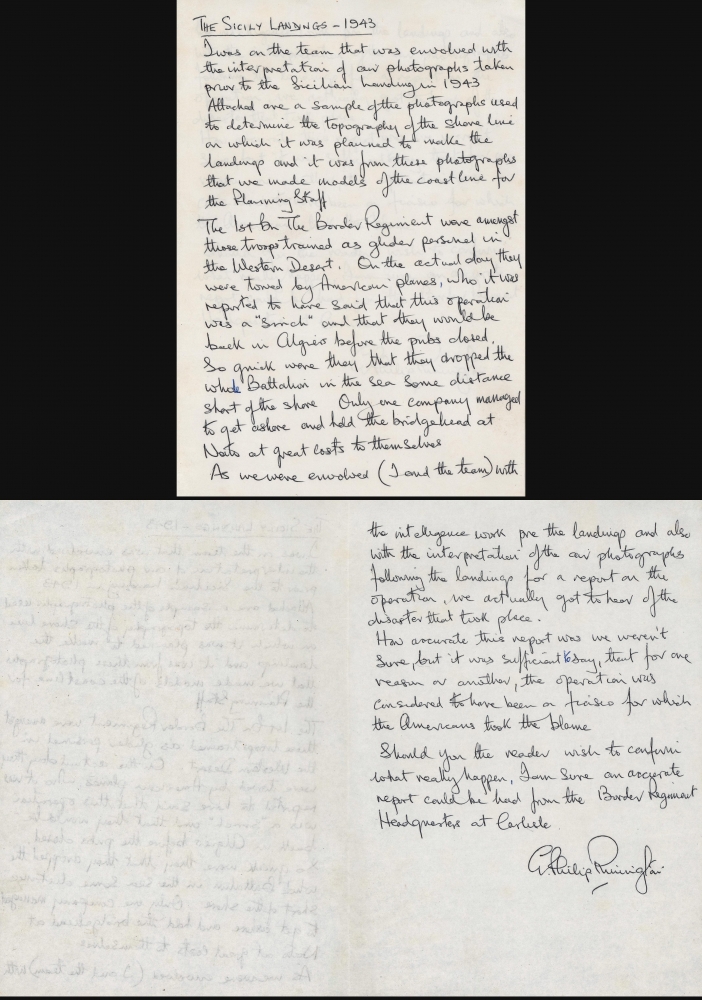 THE SICILY LANDINGS - 1943
I was on the team that was envolved with
the interpretation of air photographs taken
prior to the Sicilian Landing in 1943
Attached are a sample of the photographs used
to determine the topography of the shore line
on which it was planned to make the
landings and it was from these photographs
that we made models of the coast line for
the Planning Staff
The 1st Bn The Border Regiment were amongst
those troops trained as glider personal in
the Western Desert. On the actual day they
were towed by American planes, who it was
reported to have said that this operation
was a "sinch" and that they would be
back in Algiers before the pubs closed.
So quick were they that they dropped the
whole Battalion in the sea some distance
short of the shore Only one company managed
to get ashore and hold the bridgehead at
Noto at great costs to themselves
As we were envolved (I and the team) with
the intelligence work pre the landings and also
with the interpretation of the air photographs
following the landings for a report on the
operation, we actually got to hear of the
disaster that took place.
How accurate this report was we weren't
sure, but it was sufficient to say, that for one
reason or another, the operation was
considered to have been a fiasco for which
the Americans took the blame
Should you the reader wish to confirm
what really happen, I am sure an accurate
report could be had from the Border Regiment
Headquarters at Carlisle.
Philip